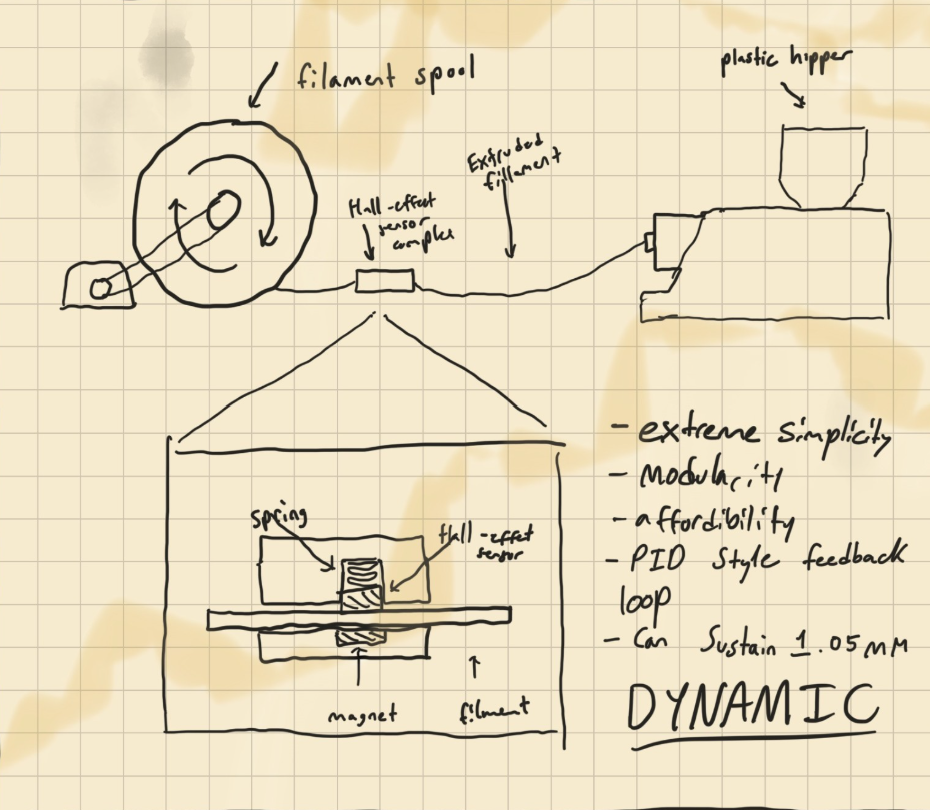 filament spool
plastic hipper
Extruded
fillament
Hall-effect
sensor
complex
- extreme simplicity
- Modularity
- affordibility
- PID Style feedback
loop
- Can Sustain 1.05mm
DYNAMIC
spring
Hall-effet
sensor
magnet
filment